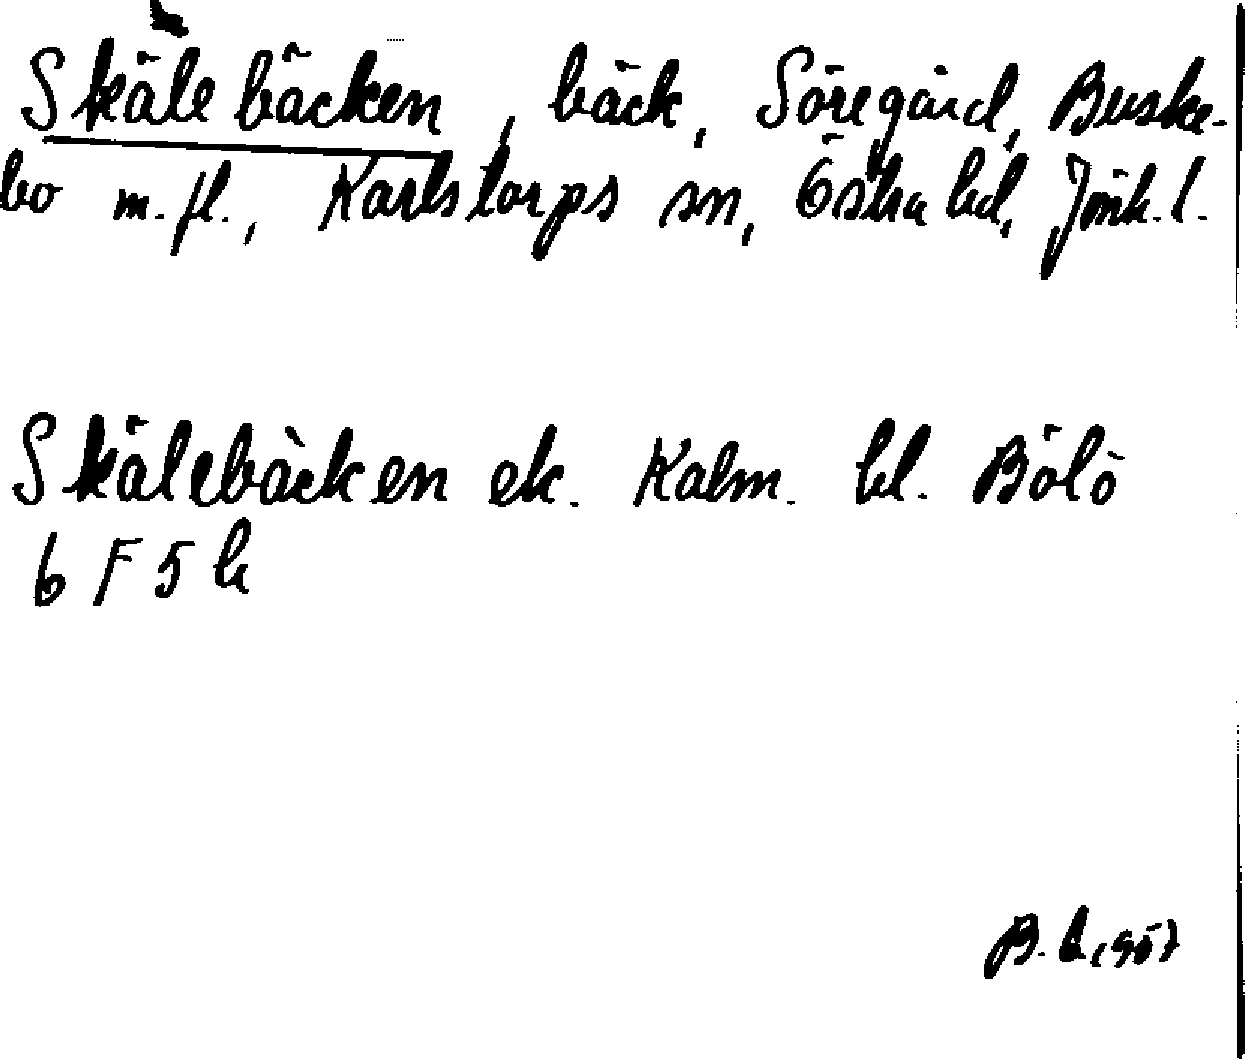 Skälebäcken, bäck, Söregård, Buske-
bo m.fl., Karlstorps sn, Östra hd, Jönk. l.
Skälebäcken ek. Kalm. bl. Bölö
6 F 5 h